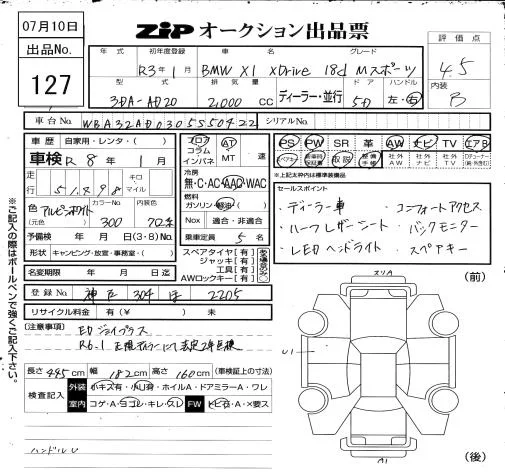 07月10日
ZIP オークション出品票
出品No.
127
年式
初年度登録
車名
グレード
評価点
R3年1月 BMW X1 xDrive 18d Mスポーツ
4.5
型式
排気量
ドア
ハンドル
内装
3DA-AD20 2,000 CC ディーラー・並行 5D 左・右
B
車台No. WBA32AD0305S50422 シリアルNo.
車歴 自家用・レンタ・( )
フロア コラム インパネ
AT MT 速
PS PW SR 革 AW ナビ TV エアB
車検 R8年1月
ペアキー 車両取説 取説 整備手帳 社外AW 社外ナビ 社外TV
※上記太枠内は標準装備品
走行 51,898 キロ マイル
冷房
無・C・AC・AAC・WAC
セールスポイント
色(元色) アルピンホワイト カラーNo. 300 内装色
燃料
ガソリン・軽油( )
・ディーラー車 ・コンフォートアクセス
Nox 適合・非適合
・ハーフレザーシート ・バックモニター
予備検 年 月 日(3・8)No.
乗車定員 5名
・LEDヘッドライト ・スペアキー
形状 キャンピング・放宣・事務室・( )
スペアタイヤ【有】
ジャッキ【有】
工具【有】
AWロックキー【有】
名変期限 年 月 日迄
登録No. 神戸 304 ほ 2205
スリA
(前)
リサイクル料金 有(¥ )・無
(注意事項) EDジョイプラス
R6-1 正規ディーラーにて法定2年点検
U1
長さ 445cm 幅 182cm 高さ 160cm (車検証上の寸法)
検査記入 外装 小キズ有・小U有・ホイルA・ドアミラーA・ワレ
室内 コゲ・A・ヨゴレ・キレ・スレ FW トビ石・A・×要ス
A1
ハンドルU
(後)
※ご記入の際はボールペンで強くご記入下さい。